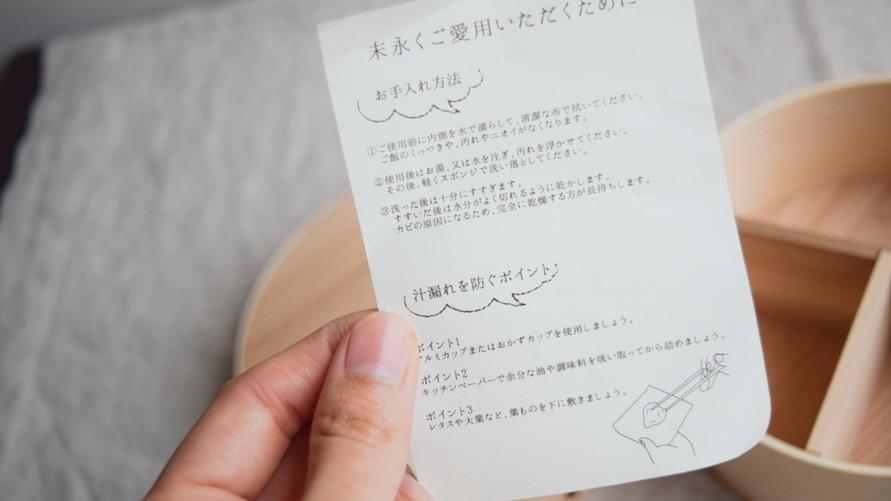 末永くご愛用いただくために
お手入れ方法
①ご使用前に内側を水で濡らして、清潔な布で拭いてください。
ご飯のくっつきや、汚れやニオイがなくなります。
②使用後はお湯、又は水を注ぎ、汚れを浮かせてください。
その後、軽くスポンジで洗い落としてください。
③洗った後は十分にすすぎます。
すすいだ後は水分がよく切れるように乾かします。
カビの原因になるため、完全に乾燥する方が長持ちします。
汁漏れを防ぐポイント
ポイント1
アルミカップまたはおかずカップを使用しましょう。
ポイント2
キッチンペーパーで余分な油や調味料を吸い取ってから詰めましょう。
ポイント3
レタスや大葉など、葉ものを下に敷きましょう。